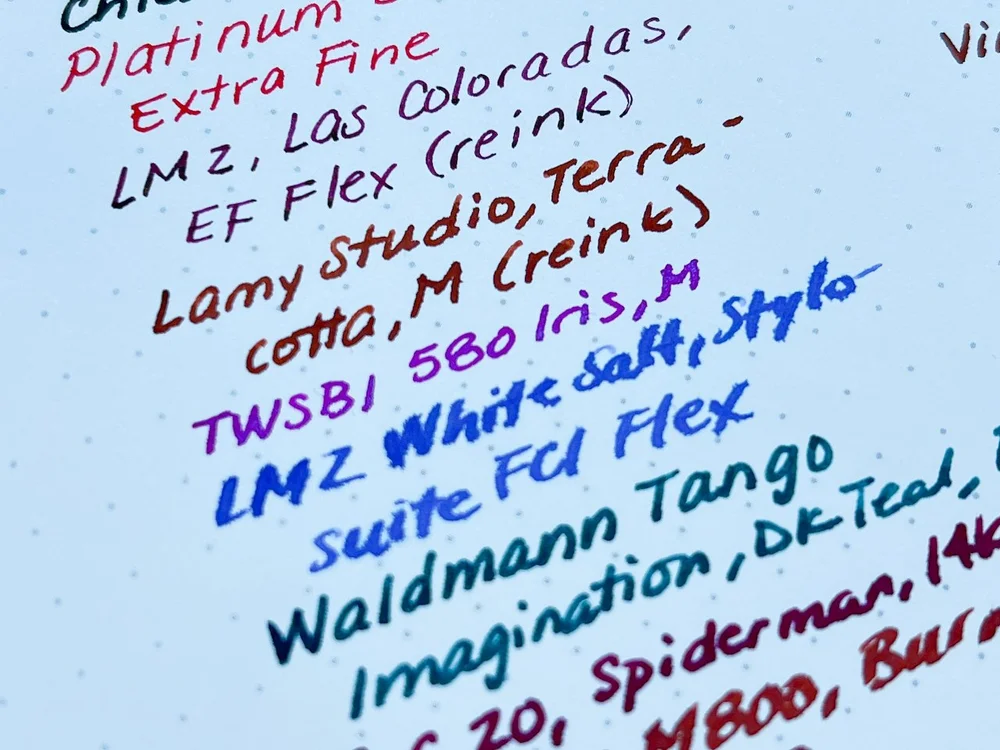 Platinum
Extra Fine
LMZ, Las Coloradas,
EF Flex (reink)
Lamy Studio, Terra-
cotta, M (reink)
TWSBI 580 Iris, M
LMZ White Salt, Stylo-
suite FCI Flex
Waldmann Tango
Imagination, DK Teal,
20, Spiderman, 14k
M800,